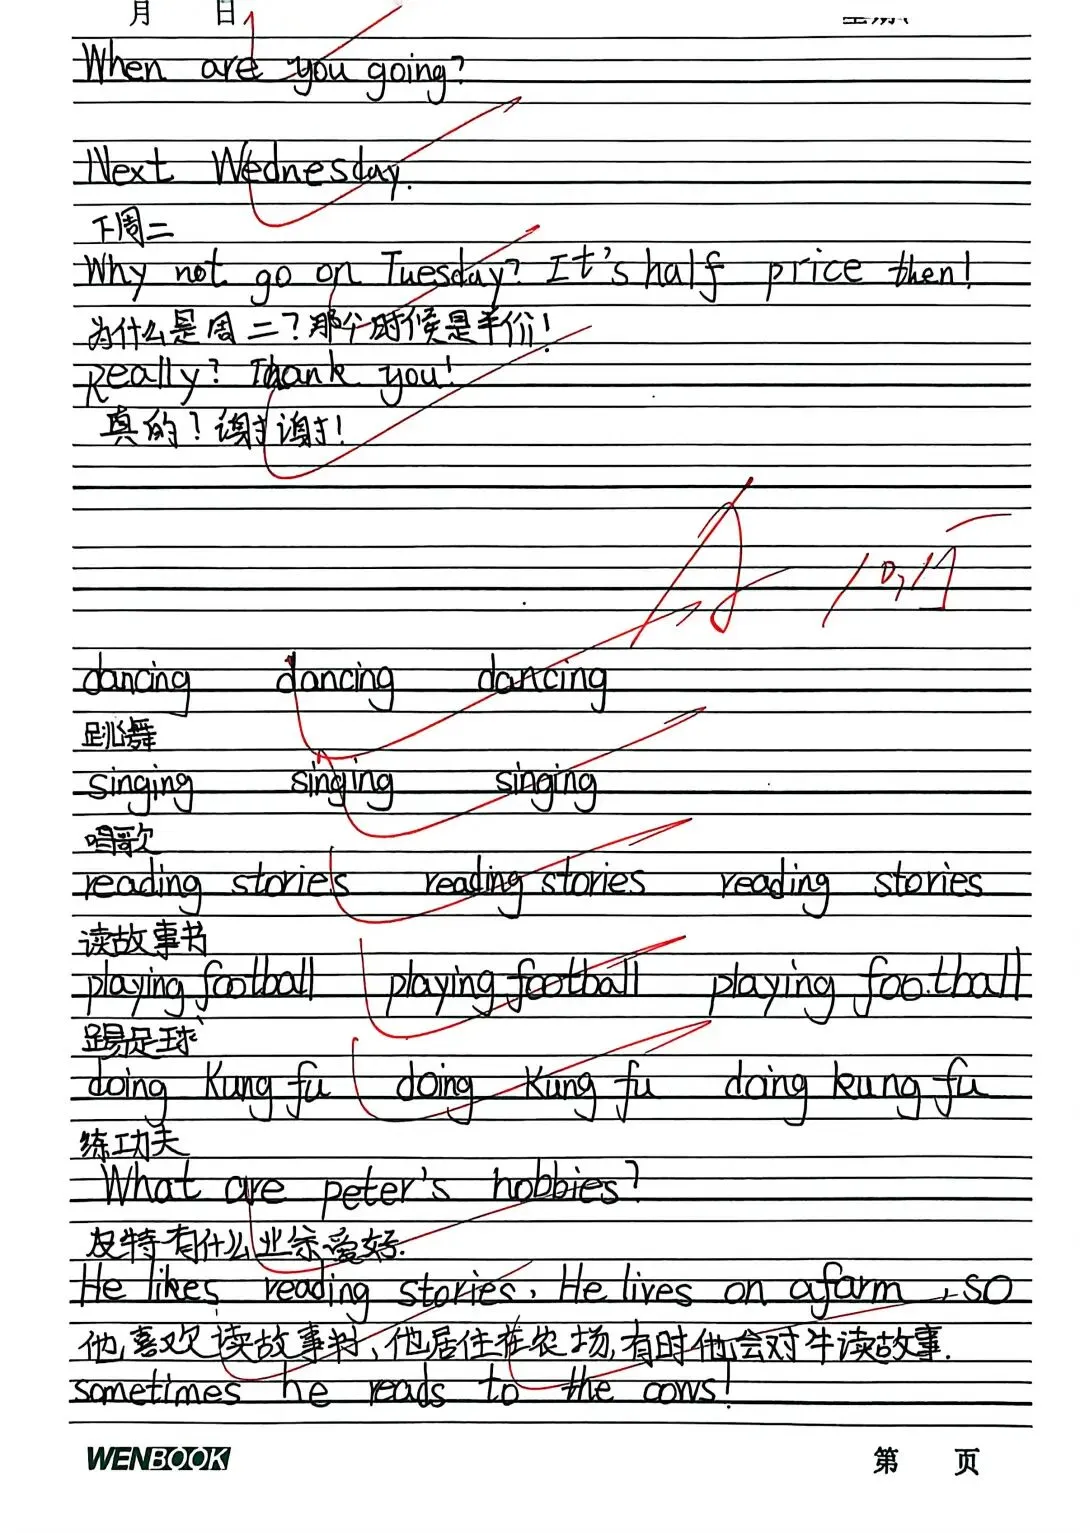 月 日
When are you going?
Next Wednesday.
下周二
Why not go on Tuesday? It's half price then!
为什么是周二?那个时候是半价!
Really? Thank you!
真的?谢谢!
10,15
dancing dancing dancing
跳舞
singing singing singing
唱歌
reading stories reading stories reading stories
读故事书
playing football playing football playing foo.tball
踢足球
doing Kung fu doing Kung fu doing kung fu
练工功夫
What are peter's hobbies?
皮特有什么业余爱好.
He likes reading stories. He lives on a farm, so
他喜欢读故事书、他居住在农场,有时他会对牛读故事.
sometimes he reads to the cows!
WENBOOK
第 页